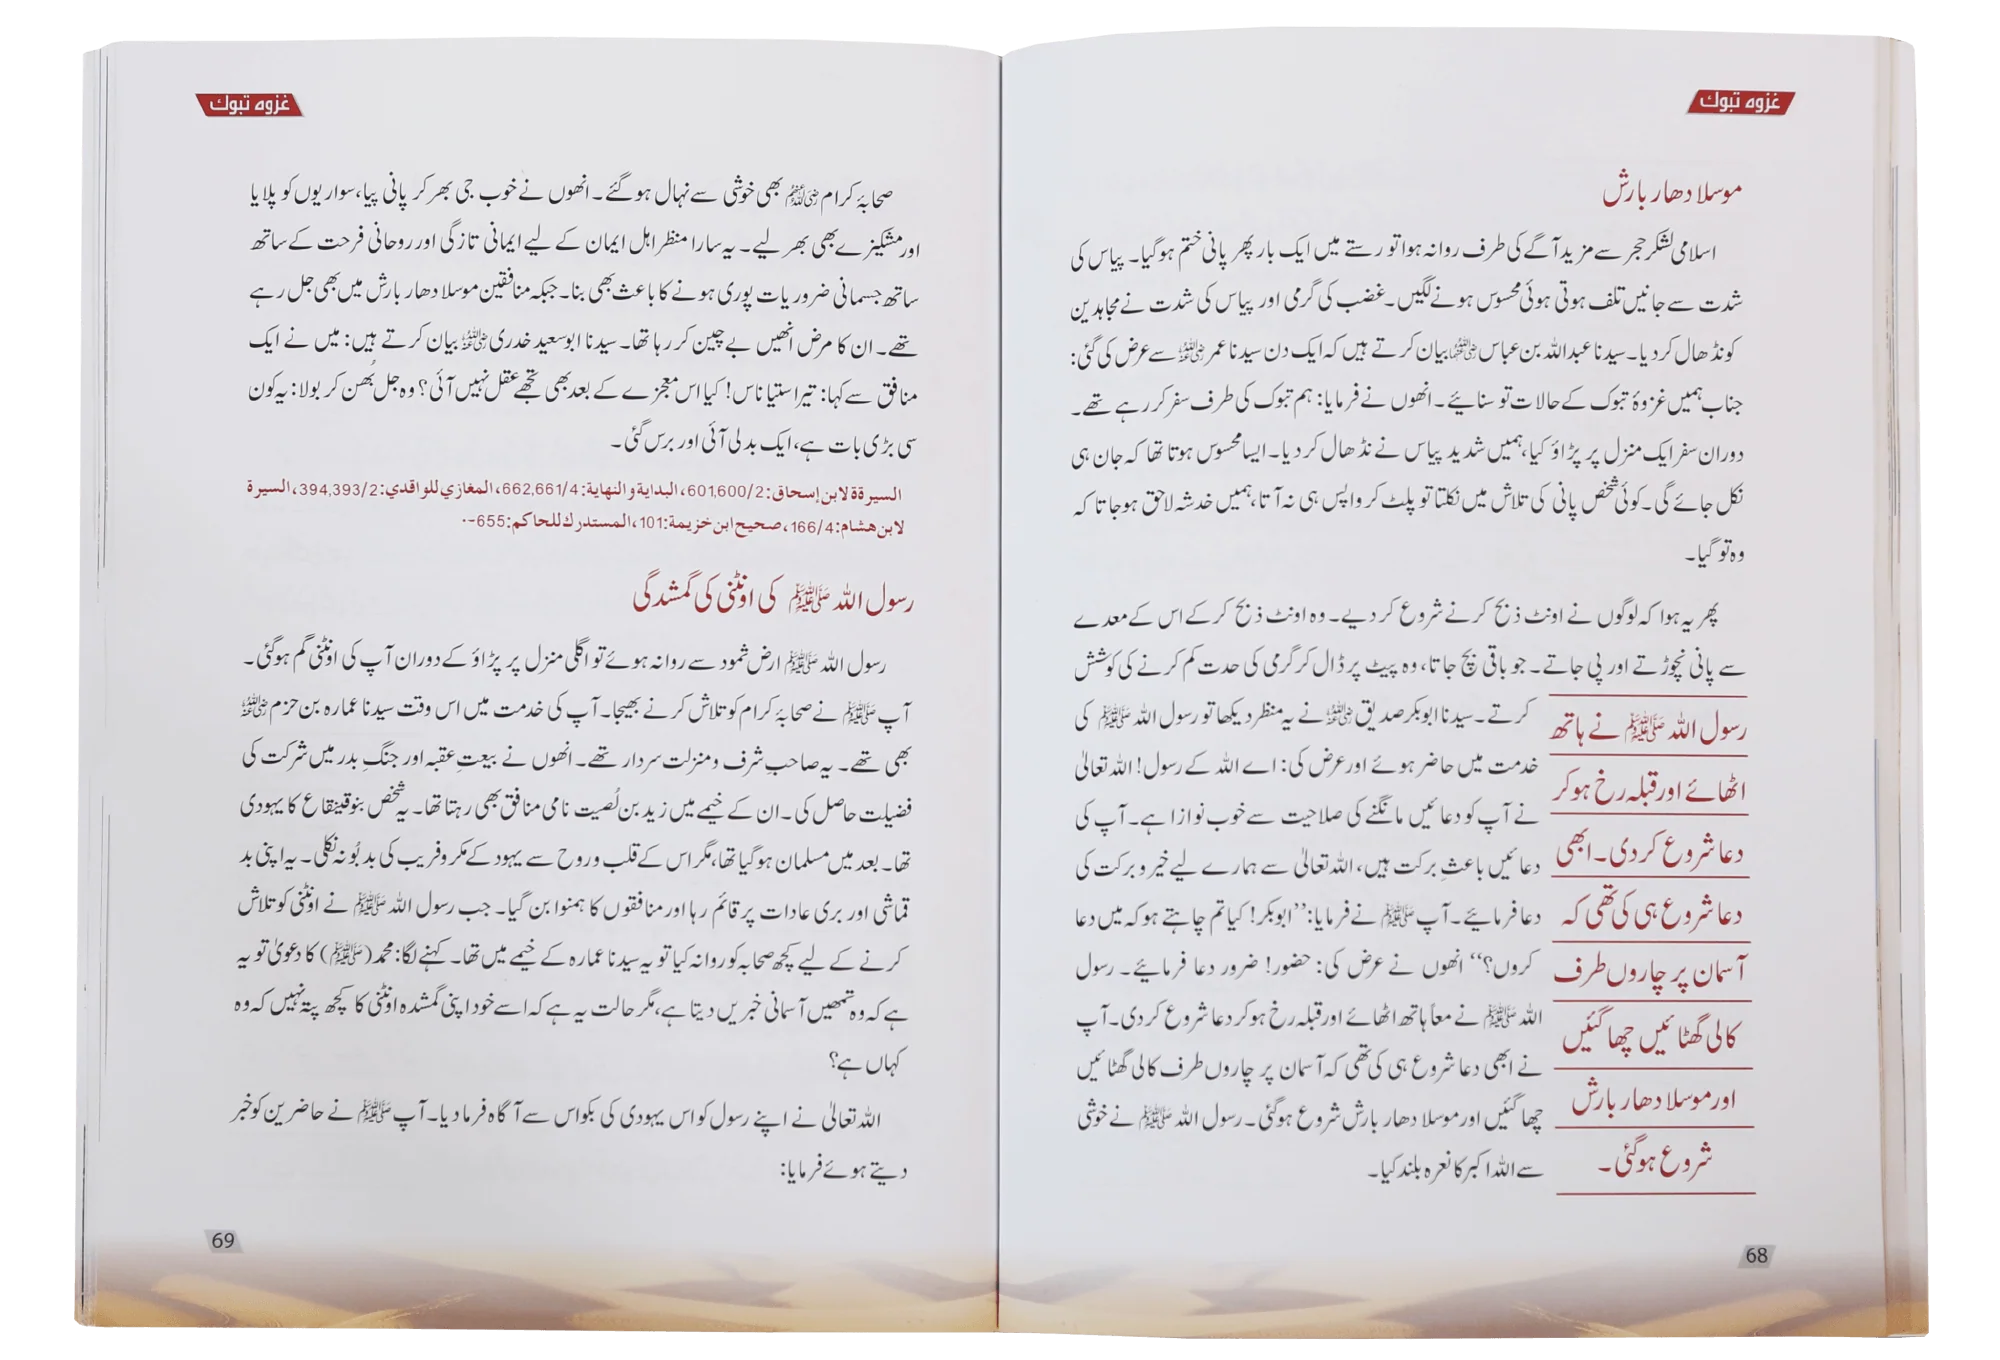 غزوہ تبوک
موسلا دھار بارش
اسلامی لشکر حجر سے مزید آگے کی طرف روانہ ہوا تو رستے میں ایک بار پھر پانی ختم ہوگیا۔ پیاس کی
شدت سے جانیں تلف ہوتی ہوئی محسوس ہونے لگیں۔ غضب کی گرمی اور پیاس کی شدت نے مجاہدین
کو نڈھال کر دیا۔ سیدنا عبداللہ بن عباس رضی اللہ عنہما بیان کرتے ہیں کہ ایک دن سیدنا عمر رضی اللہ عنہ سے عرض کی گئی:
جناب ہمیں غزوۂ تبوک کے حالات تو سنائیے۔ انھوں نے فرمایا: ہم تبوک کی طرف سفر کر رہے تھے۔
دوران سفر ایک منزل پر پڑاؤ کیا، ہمیں شدید پیاس نے نڈھال کر دیا۔ ایسا محسوس ہوتا تھا کہ جان ہی
نکل جائے گی۔ کوئی شخص پانی کی تلاش میں نکلتا تو پلٹ کر واپس ہی نہ آتا، ہمیں خدشہ لاحق ہو جاتا کہ
وہ تو گیا۔
پھر یہ ہوا کہ لوگوں نے اونٹ ذبح کرنے شروع کر دیے۔ وہ اونٹ ذبح کر کے اس کے معدے
سے پانی نچوڑتے اور پی جاتے۔ جو باقی بچ جاتا، وہ پیٹ پر ڈال کر گرمی کی حدت کم کرنے کی کوشش
کرتے۔ سیدنا ابوبکر صدیق رضی اللہ عنہ نے یہ منظر دیکھا تو رسول اللہ ﷺ کی
خدمت میں حاضر ہوئے اور عرض کی: اے اللہ کے رسول! اللہ تعالیٰ
نے آپ کو دعائیں مانگنے کی صلاحیت سے خوب نوازا ہے۔ آپ کی
دعائیں باعثِ برکت ہیں، اللہ تعالیٰ سے ہمارے لیے خیر و برکت کی
دعا فرمائیے۔ آپ ﷺ نے فرمایا: ’’ابوبکر! کیا تم چاہتے ہو کہ میں دعا
کروں؟‘‘ انھوں نے عرض کی: حضور! ضرور دعا فرمائیے۔ رسول
اللہ ﷺ نے معاً ہاتھ اٹھائے اور قبلہ رخ ہو کر دعا شروع کر دی۔ آپ
نے ابھی دعا شروع ہی کی تھی کہ آسمان پر چاروں طرف کالی گھٹائیں
چھا گئیں اور موسلا دھار بارش شروع ہوگئی۔ رسول اللہ ﷺ نے خوشی
سے اللہ اکبر کا نعرہ بلند کیا۔
رسول اللہ ﷺ نے ہاتھ
اٹھائے اور قبلہ رخ ہو کر
دعا شروع کر دی۔ ابھی
دعا شروع ہی کی تھی کہ
آسمان پر چاروں طرف
کالی گھٹائیں چھا گئیں
اور موسلا دھار بارش
شروع ہوگئی۔
68
غزوہ تبوک
صحابۂ کرام رضی اللہ عنہم بھی خوشی سے نہال ہوگئے۔ انھوں نے خوب جی بھر کر پانی پیا، سواریوں کو پلایا
اور مشکیزے بھی بھر لیے۔ یہ سارا منظر اہل ایمان کے لیے ایمانی تازگی اور روحانی فرحت کے ساتھ
ساتھ جسمانی ضروریات پوری ہونے کا باعث بھی بنا۔ جبکہ منافقین موسلا دھار بارش میں بھی جل رہے
تھے۔ ان کا مرض انھیں بے چین کر رہا تھا۔ سیدنا ابوسعید خدری رضی اللہ عنہ بیان کرتے ہیں: میں نے ایک
منافق سے کہا: تیرا ستیاناس! کیا اس معجزے کے بعد بھی تجھے عقل نہیں آئی؟ وہ جل بُھن کر بولا: یہ کون
سی بڑی بات ہے، ایک بدلی آئی اور برس گئی۔
السیرۃ لابن إسحاق: 601,600/2، البداية والنهاية: 662,661/4، المغازي للواقدي: 394,393/2، السيرة
لابن هشام: 166/4، صحيح ابن خزيمة: 101، المستدرك للحاكم: 655-۔
رسول اللہ ﷺ کی اونٹنی کی گمشدگی
رسول اللہ ﷺ ارض ثمود سے روانہ ہوئے تو اگلی منزل پر پڑاؤ کے دوران آپ کی اونٹنی گم ہوگئی۔
آپ ﷺ نے صحابۂ کرام کو تلاش کرنے بھیجا۔ آپ کی خدمت میں اس وقت سیدنا عمارہ بن حزم رضی اللہ عنہ
بھی تھے۔ یہ صاحبِ شرف و منزلت سردار تھے۔ انھوں نے بیعتِ عقبہ اور جنگِ بدر میں شرکت کی
فضیلت حاصل کی۔ ان کے خیمے میں زید بن لُصیت نامی منافق بھی رہتا تھا۔ یہ شخص بنوقینقاع کا یہودی
تھا۔ بعد میں مسلمان ہوگیا تھا، مگر اس کے قلب و روح سے یہود کے مکر و فریب کی بدبُو نہ نکلی۔ یہ اپنی بد
قماشی اور بری عادات پر قائم رہا اور منافقوں کا ہمنوا بن گیا۔ جب رسول اللہ ﷺ نے اونٹنی کو تلاش
کرنے کے لیے کچھ صحابہ کو روانہ کیا تو یہ سیدنا عمارہ کے خیمے میں تھا۔ کہنے لگا: محمد (ﷺ) کا دعویٰ تو یہ
ہے کہ وہ تمھیں آسمانی خبریں دیتا ہے، مگر حالت یہ ہے کہ اسے خود اپنی گمشدہ اونٹنی کا کچھ پتہ نہیں کہ وہ
کہاں ہے؟
اللہ تعالیٰ نے اپنے رسول کو اس یہودی کی بکواس سے آگاہ فرما دیا۔ آپ ﷺ نے حاضرین کو خبر
دیتے ہوئے فرمایا:
69